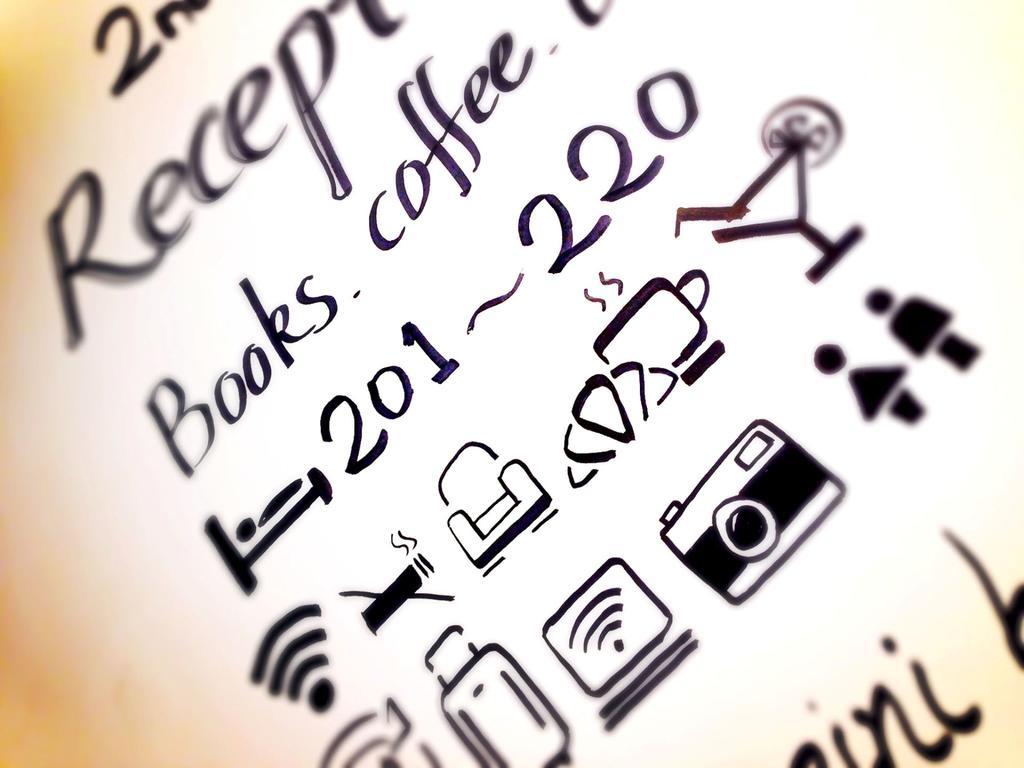 2n
Recept
Books. coffee.
201~220
ini b